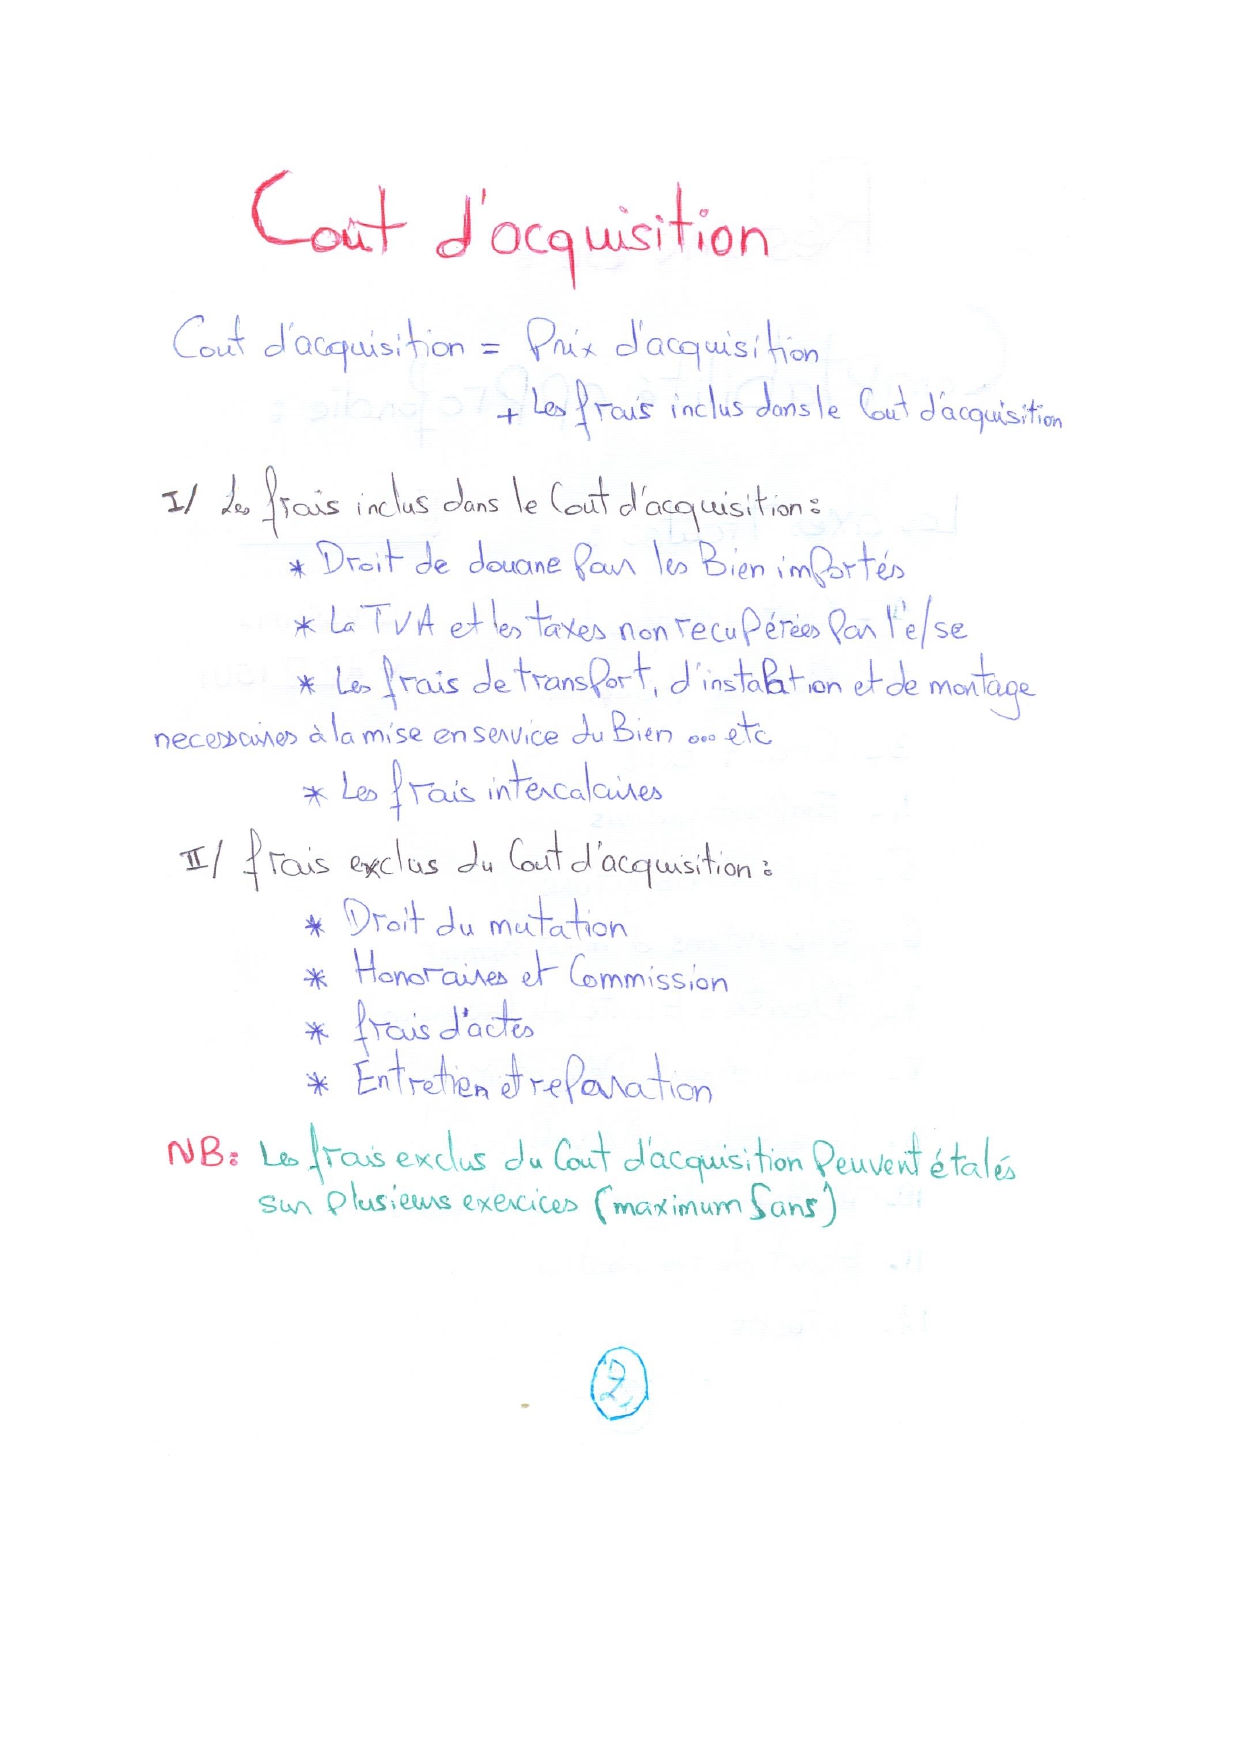 Coût d'acquisition
Cout d'acquisition = Prix d'acquisition
+ Les frais inclus dans le Cout d'acquisition
I/ Les frais inclus dans le Cout d'acquisition :
* Droit de douane Pour les Bien importés
* La TVA et les taxes non recupérées Par l'e/se
* Les frais de transport, d'installation et de montage
necessaires à la mise en service du Bien ... etc
* Les frais intercalaires
II/ frais exclus du Cout d'acquisition :
* Droit du mutation
* Honoraires et Commission
* frais d'actes
* Entretien et reparation
NB: Les frais exclus du Cout d'acquisition Peuvent étalés
sur plusieurs exercices (maximum 5 ans)
2